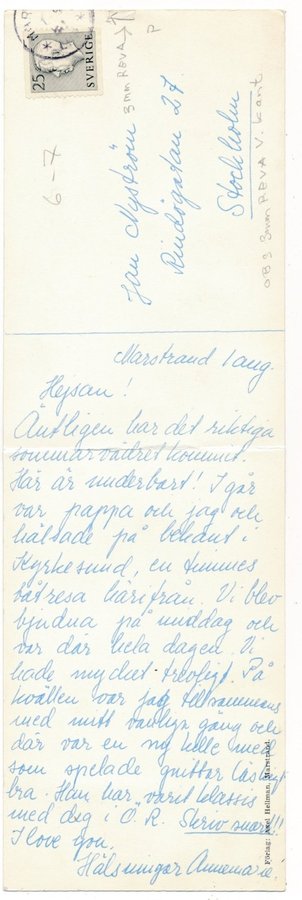 MAR
25
SVERIGE
3mm REVA
P
6-7
Jan Nyström
Rindögatan 27
Stockholm
OBS 3mm REVA V. kant
Marstrand 1 aug.
Hejsan!
Äntligen har det riktiga
sommarvädret kommit.
Här är underbart! I går
var pappa och jag och
hälsade på bekant i
Kyrkesund, en timmes
båtresa härifrån. Vi blev
bjudna på middag och
var där hela dagen. Vi
hade mycket trevligt. På
kvällen var jag tillsammans
med mitt vanliga gäng och
där var en ny kille med
som spelade guittar
bra. Han har varit klassis
med dig i Ö. R. Skriv snart!!
I love you.
Hälsningar Annemarie.
Förlag: Axel Hellman, Marstrand